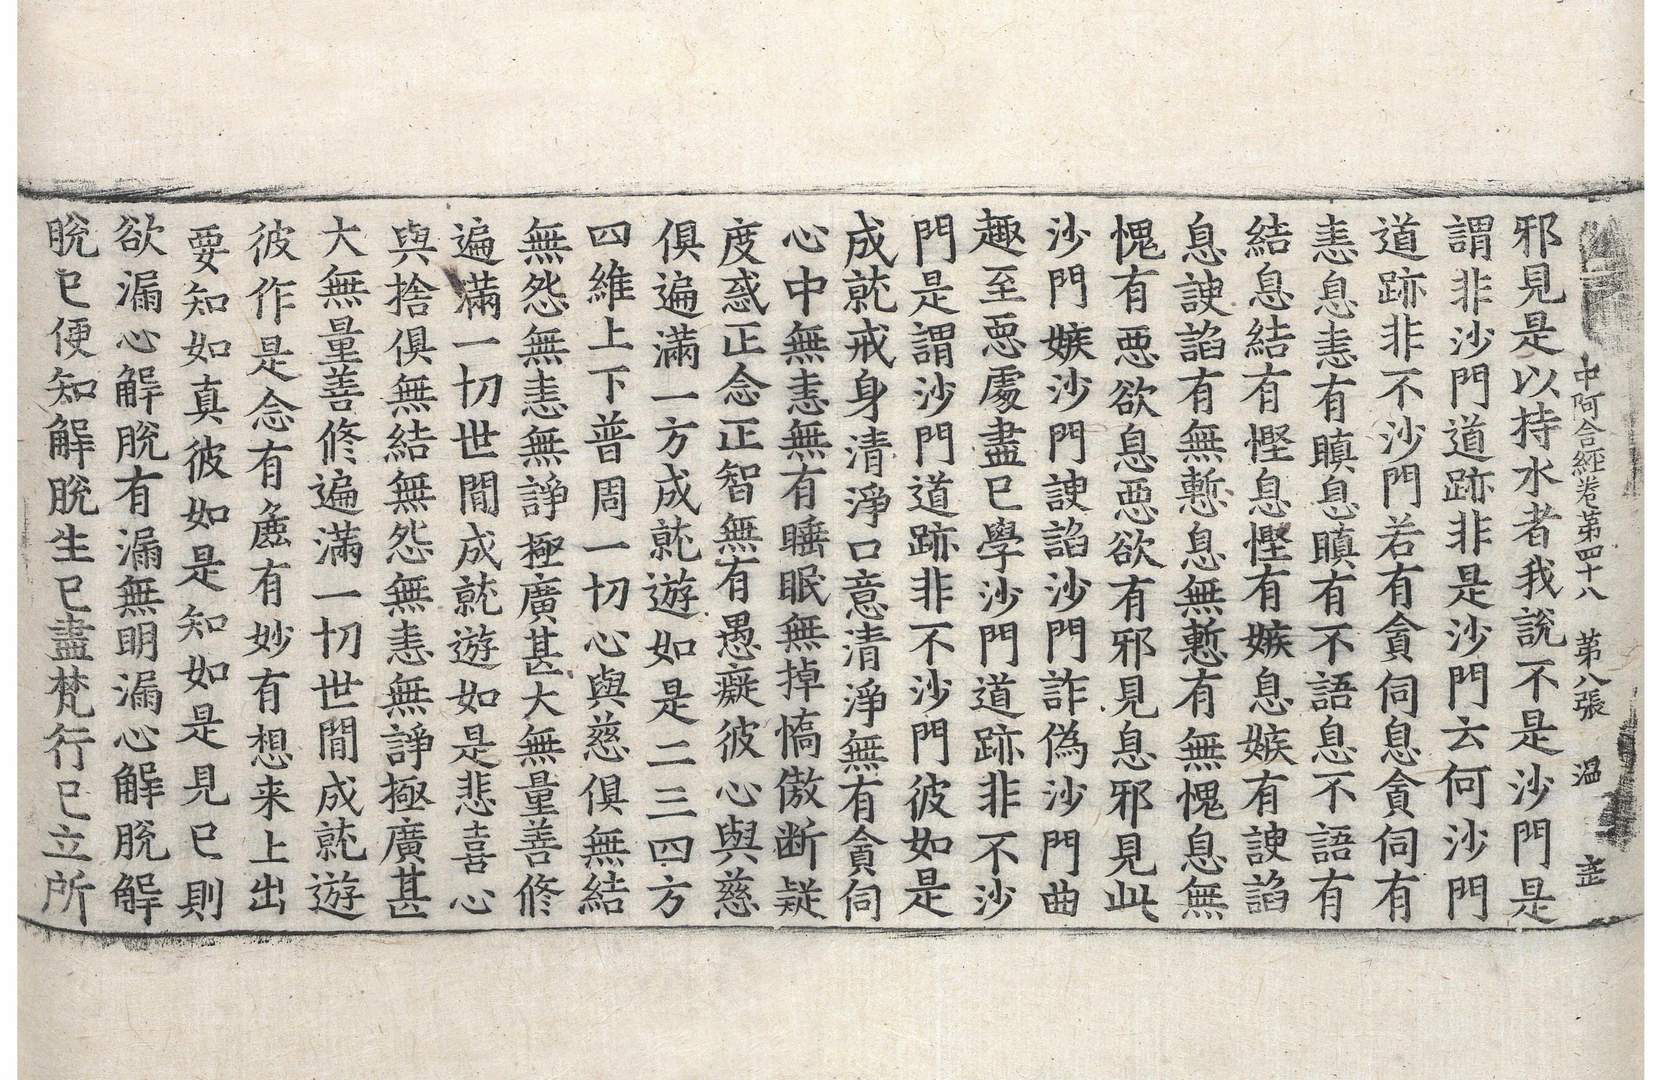 中阿含經卷第四十八　第八張　溫
邪見是以持水者我說不是沙門是
謂非沙門道跡非是沙門云何沙門
道跡非不沙門若有貪伺息貪伺有
恚息恚恚有瞋息瞋有不語息不語有
結息結有慳息慳有嫉息嫉有諛諂
息諛諂有無慙息無慙有無愧息無
愧有惡欲息惡欲有邪見息邪見此
沙門嫉沙門諛諂沙門詐偽沙門曲
趣至惡處盡已學沙門道跡非不沙
門是謂沙門道跡非不沙門彼如是
成就戒身清淨口意清淨無有貪伺
心中無恚無有睡眠無掉憍傲断疑
度惑正念正智無有愚癡彼心與慈
俱遍滿一方成就遊如是二三四方
四維上下普周一切心與慈俱無結
無怨無恚無諍極廣甚大無量善修
遍滿一切世間成就遊如是悲喜心
與捨俱無結無怨無恚無諍極廣甚
大無量善修遍滿一切世間成就遊
彼作是念有麁有妙有想来上出
要知如真彼如是知如是見已則
欲漏心解脫有漏無明漏心解脫解
脫已便知解脫生已盡梵行已立所